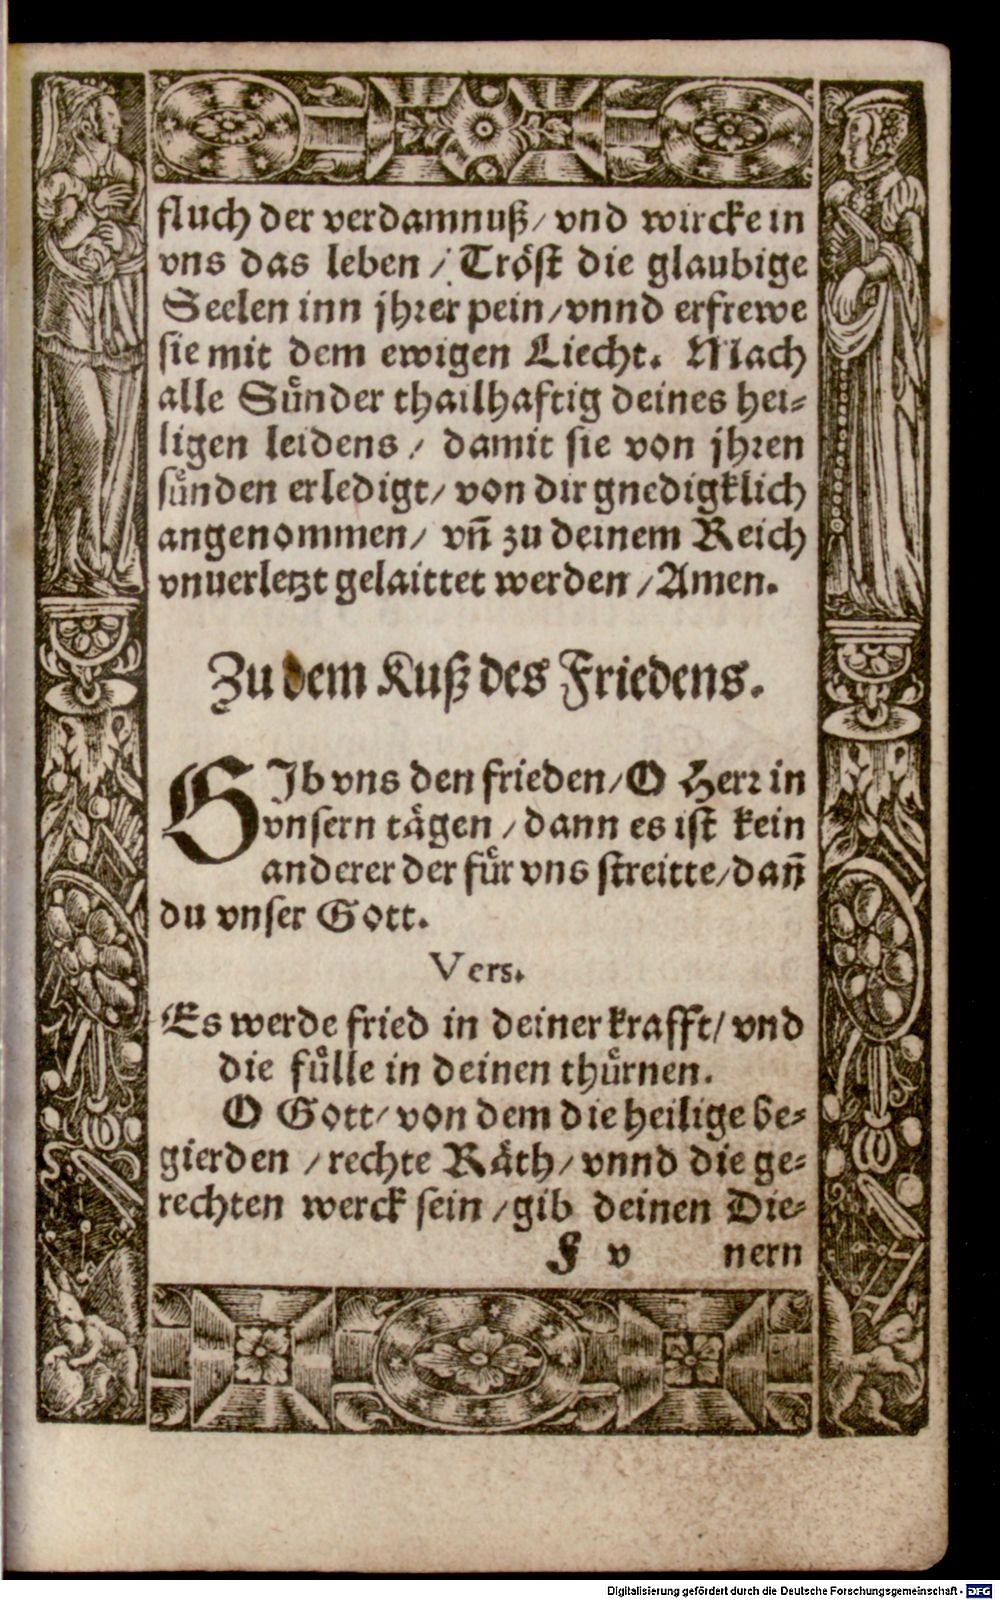 fluch der verdamnuß / vnd wircke in
vns das leben / Tröst die glaubige
Seelen inn jhrer pein / vnnd erfrewe
sie mit dem ewigen Liecht. Mach
alle Sůnder thailhaftig deines hei-
ligen leidens / damit sie von jhren
sůnden erledigt / von dir gnedigklich
angenommen / vñ zu deinem Reich
vnuerletzt gelaittet werden / Amen.
Zu dem Kuß des Friedens.
GIb vns den frieden / O Herr in
vnsern tägen / dann es ist kein
anderer der fůr vns streitte / dañ
du vnser Gott.
Vers.
Es werde fried in deiner krafft / vnd
die fůlle in deinen thůrnen.
O Gott / von dem die heilige be-
gierden / rechte Räth / vnnd die ge-
rechten werck sein / gib deinen Die-
F v nern
Digitalisierung gefördert durch die Deutsche Forschungsgemeinschaft - DFG